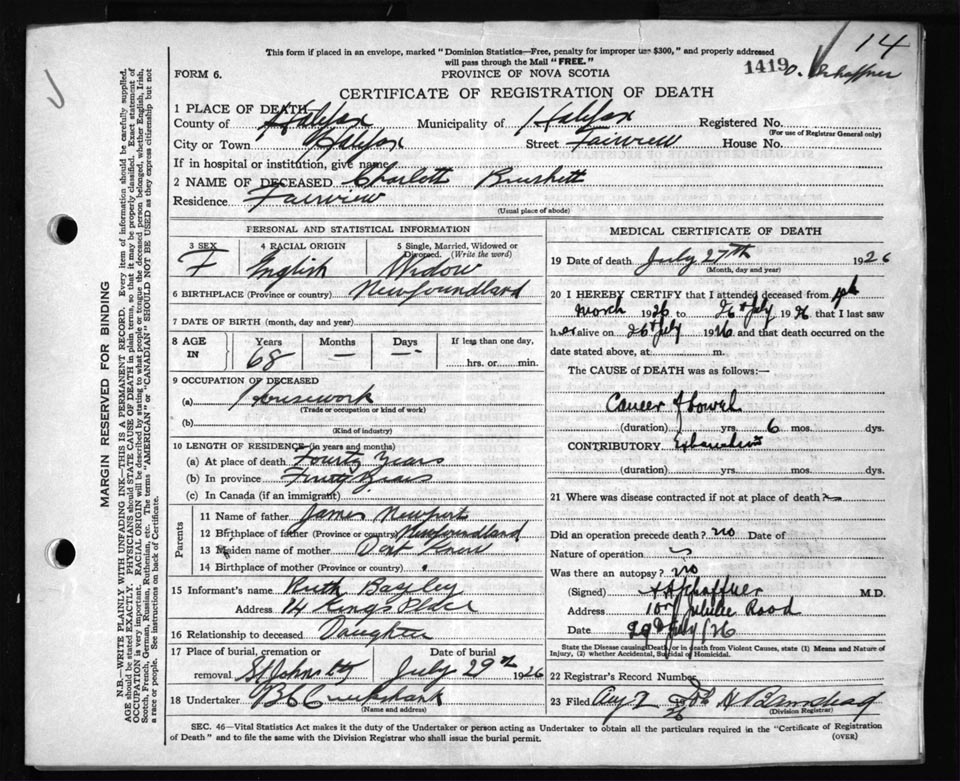 14
This form if placed in an envelope, marked "Dominion Statistics—Free, penalty for improper use $300," and properly addressed
will pass through the Mail "FREE."
1419
FORM 6.
PROVINCE OF NOVA SCOTIA
CERTIFICATE OF REGISTRATION OF DEATH
1 PLACE OF DEATH
County of Halifax Municipality of Halifax Registered No.
(For use of Registrar General only)
City or Town Halifax Street Fairview House No.
If in hospital or institution, give name
2 NAME OF DECEASED Charlott
Residence Fairview
(Usual place of abode)
PERSONAL AND STATISTICAL INFORMATION
3 SEX 4 RACIAL ORIGIN 5 Single, Married, Widowed or Divorced. (Write the word)
F English Widow
6 BIRTHPLACE (Province or country) Newfoundland
7 DATE OF BIRTH (month, day and year)
8 AGE IN Years Months Days If less than one day,
68 — — hrs. or min.
9 OCCUPATION OF DECEASED
(a) Housework
(Trade or occupation or kind of work)
(b)
(Kind of industry)
10 LENGTH OF RESIDENCE (in years and months)
(a) At place of death Fourty Years
(b) In province Fourty Years
(c) In Canada (if an immigrant)
Parents
11 Name of father James Newport
12 Birthplace of father (Province or country) Newfoundland
13 Maiden name of mother Dont Know
14 Birthplace of mother (Province or country)
15 Informant's name Ruth Bagley
Address 14 Kings Place
16 Relationship to deceased Daughter
17 Place of burial, cremation or removal Date of burial
St Johns July 29th 1926
18 Undertaker Cruikshank
(Name and address)
MEDICAL CERTIFICATE OF DEATH
19 Date of death July 27th 1926
(Month, day and year)
20 I HEREBY CERTIFY that I attended deceased from
March 1926 to 26th July 1926 that I last saw
her alive on 26th July 1926 and that death occurred on the
date stated above, at m.
The CAUSE of DEATH was as follows:—
Cancer of bowel
(duration) yrs. 6 mos. dys.
CONTRIBUTORY Exhaustion
(duration) yrs. mos. dys.
21 Where was disease contracted if not at place of death?
Did an operation precede death? no Date of
Nature of operation
Was there an autopsy? no
(Signed) M.D.
Address Jubilee Road
Date 29th July/26
State the Disease causing Death, or in death from Violent Causes, state (1) Means and Nature of
Injury, (2) whether Accidental, Suicidal or Homicidal.
22 Registrar's Record Number
23 Filed Aug 2
(Division Registrar)
SEC. 46—Vital Statistics Act makes it the duty of the Undertaker or person acting as Undertaker to obtain all the particulars required in the "Certificate of Registration
of Death" and to file the same with the Division Registrar who shall issue the burial permit.
(OVER)
MARGIN RESERVED FOR BINDING
N.B.—WRITE PLAINLY WITH UNFADING INK—THIS IS A PERMANENT RECORD. Every item of information should be carefully supplied.
AGE should be stated EXACTLY. PHYSICIANS should STATE CAUSE OF DEATH in plain terms, so that it may be properly classified. Exact statement of
OCCUPATION is very important. RACIAL ORIGIN will be described by stating to what people or tongue the deceased person belonged, whether English, Irish,
Scotch, French, German, Russian, Ruthenian, etc. The terms "AMERICAN" or "CANADIAN" SHOULD NOT BE USED as they express citizenship but not
a race or people. See instructions on back of Certificate.